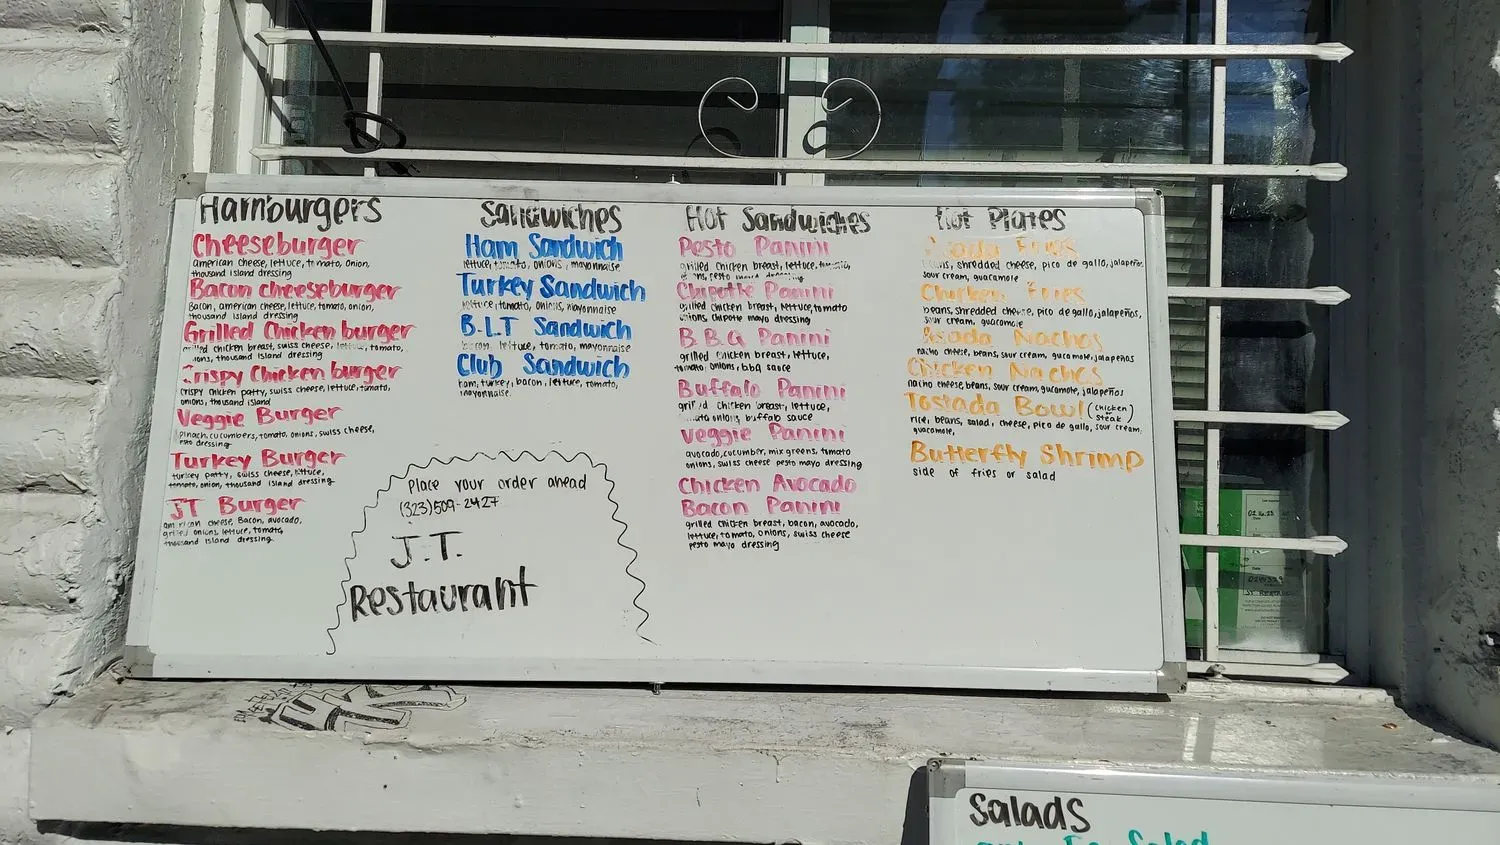 Hamburgers
Cheeseburger
american cheese, lettuce, tomato, onion,
thousand island dressing
Bacon cheeseburger
Bacon, american cheese, lettuce, tomato, onion,
thousand island dressing
Grilled Chicken burger
chicken breast, swiss cheese, lettuce, tomato,
thousand island dressing
Crispy Chicken burger
crispy chicken patty, swiss cheese, lettuce, tomato,
onions, thousand island
Veggie Burger
cucumbers, tomato, onions, swiss cheese,
dressing
Turkey Burger
turkey patty, swiss cheese, lettuce,
tomato, onion, thousand island dressing
JT Burger
cheese, Bacon, avocado,
onions, lettuce, tomato,
thousand island dressing
Sandwiches
Ham Sandwich
lettuce, tomato, onions, mayonnaise
Turkey Sandwich
lettuce, tomato, onions, mayonnaise
B.L.T Sandwich
bacon, lettuce, tomato, mayonnaise
Club Sandwich
ham, turkey, bacon, lettuce, tomato,
mayonnaise
Place your order ahead
(323)509-2427
J.T.
Restaurant
Hot Sandwiches
Pesto Panini
grilled chicken breast, lettuce, tomato,
pesto mayo dressing
Chipotle Panini
grilled chicken breast, lettuce, tomato
onions, chipotle mayo dressing
B.B.Q Panini
grilled chicken breast, lettuce,
tomato, onions, bbq sauce
Buffalo Panini
grilled chicken breast, lettuce,
tomato onions buffalo sauce
Veggie Panini
avocado, cucumber, mix greens, tomato
onions, swiss cheese pesto mayo dressing
Chicken Avocado
Bacon Panini
grilled chicken breast, bacon, avocado,
lettuce, tomato, onions, swiss cheese
pesto mayo dressing
Hot Plates
Asada Fries
beans, shredded cheese, pico de gallo, jalapeños
sour cream, guacamole
Chicken Fries
beans, shredded cheese, pico de gallo, jalapeños,
sour cream, guacamole
Asada Nachos
nacho cheese, beans, sour cream, guacamole, jalapeños
Chicken Nachos
nacho cheese, beans, sour cream, guacamole, jalapeños
Tostada Bowl (chicken or steak)
rice, beans, salad, cheese, pico de gallo, sour cream,
guacamole,
Butterfly Shrimp
side of fries or salad
Salads